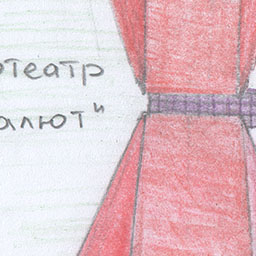 отеатр
алют"